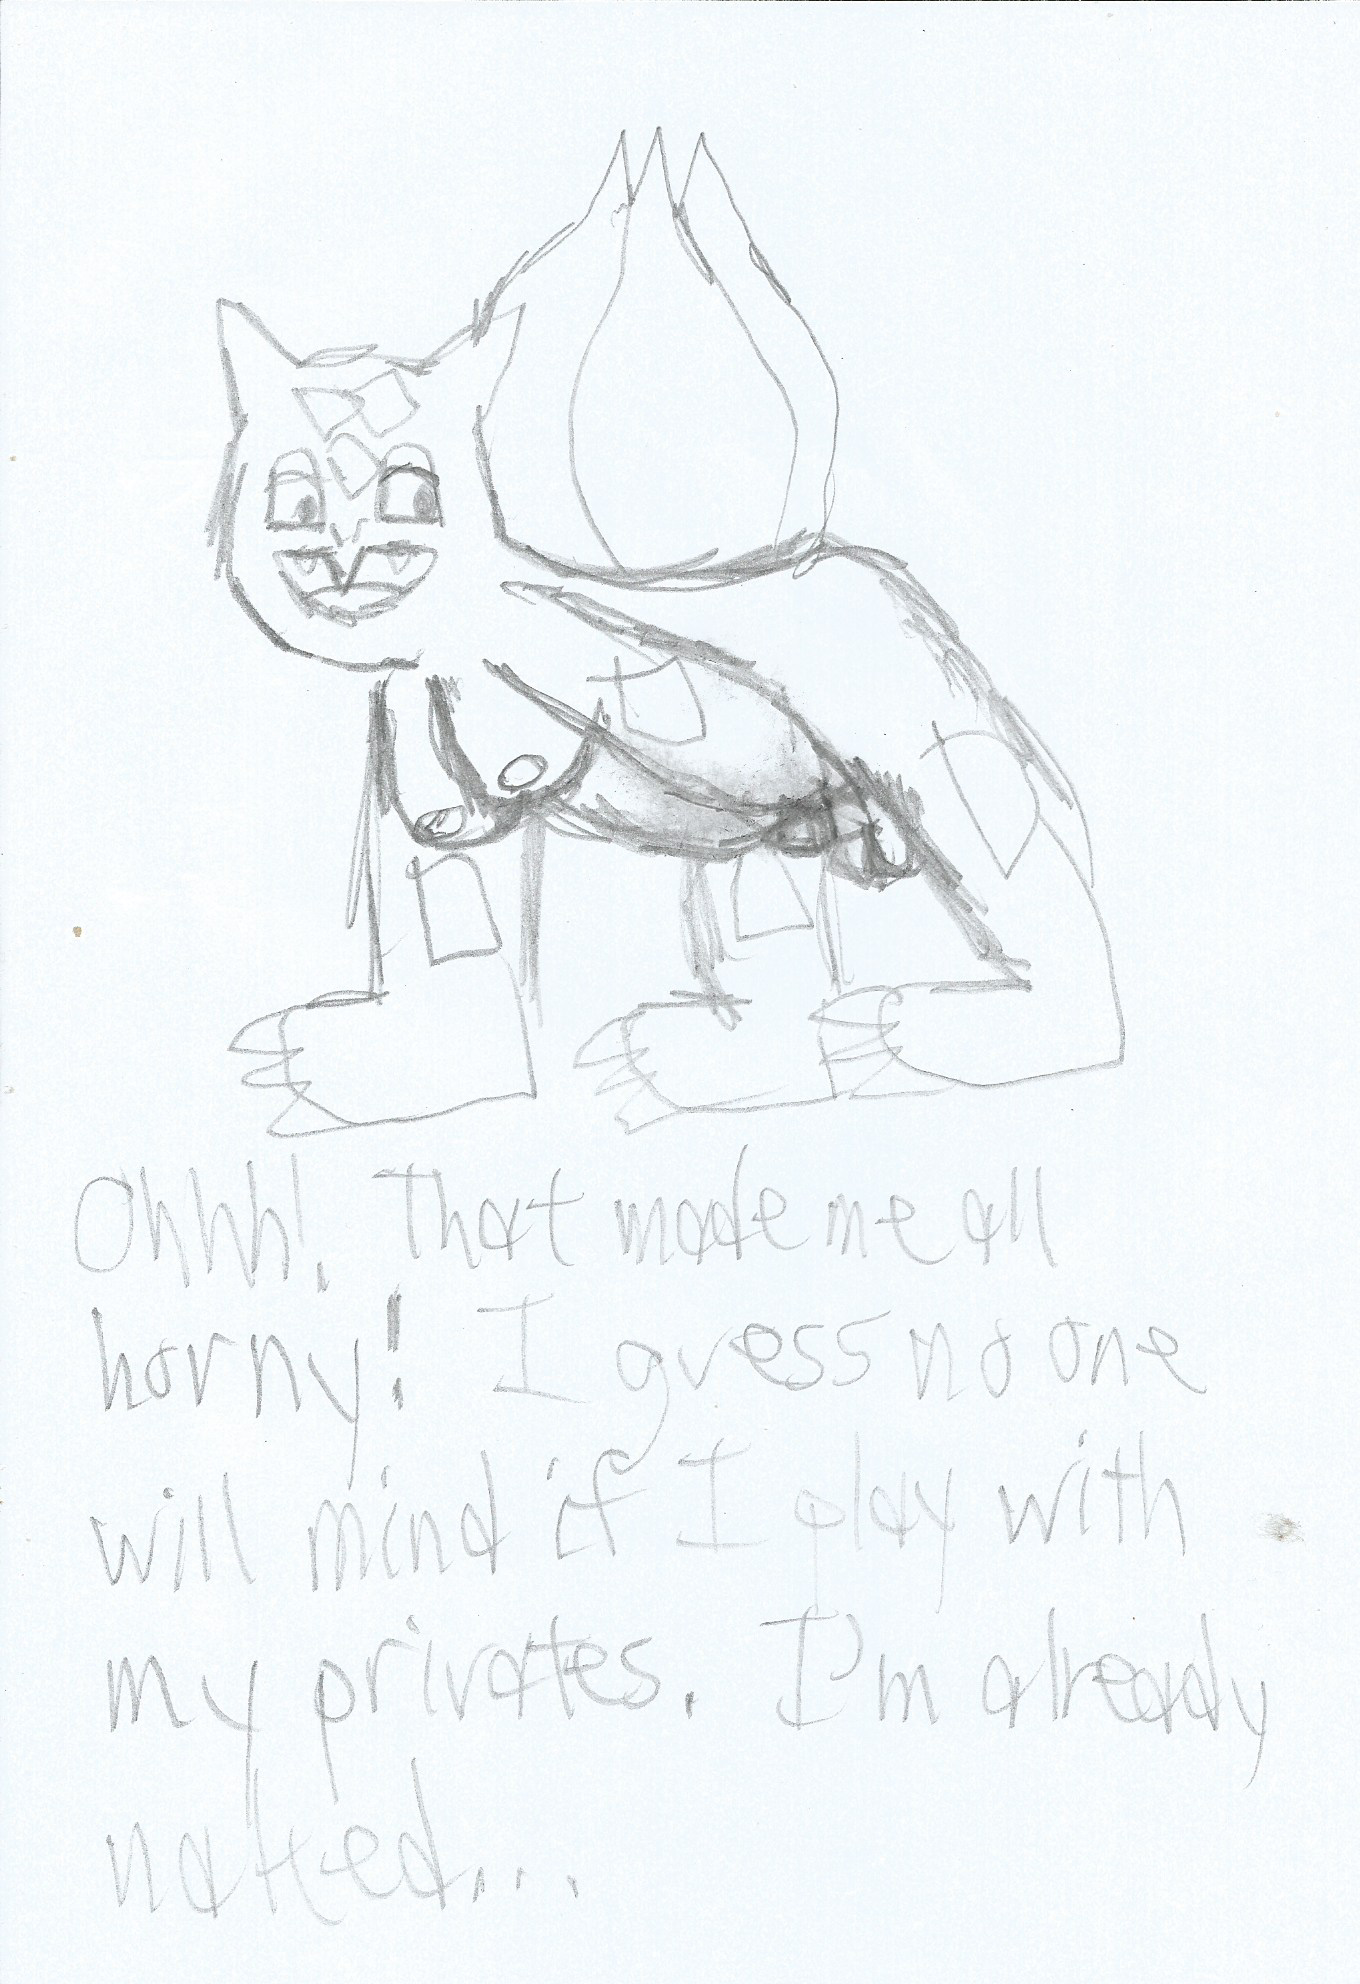 Ohhh! That made me all
horny! I guess no one
will mind if I play with
my privates. I'm already
naked...